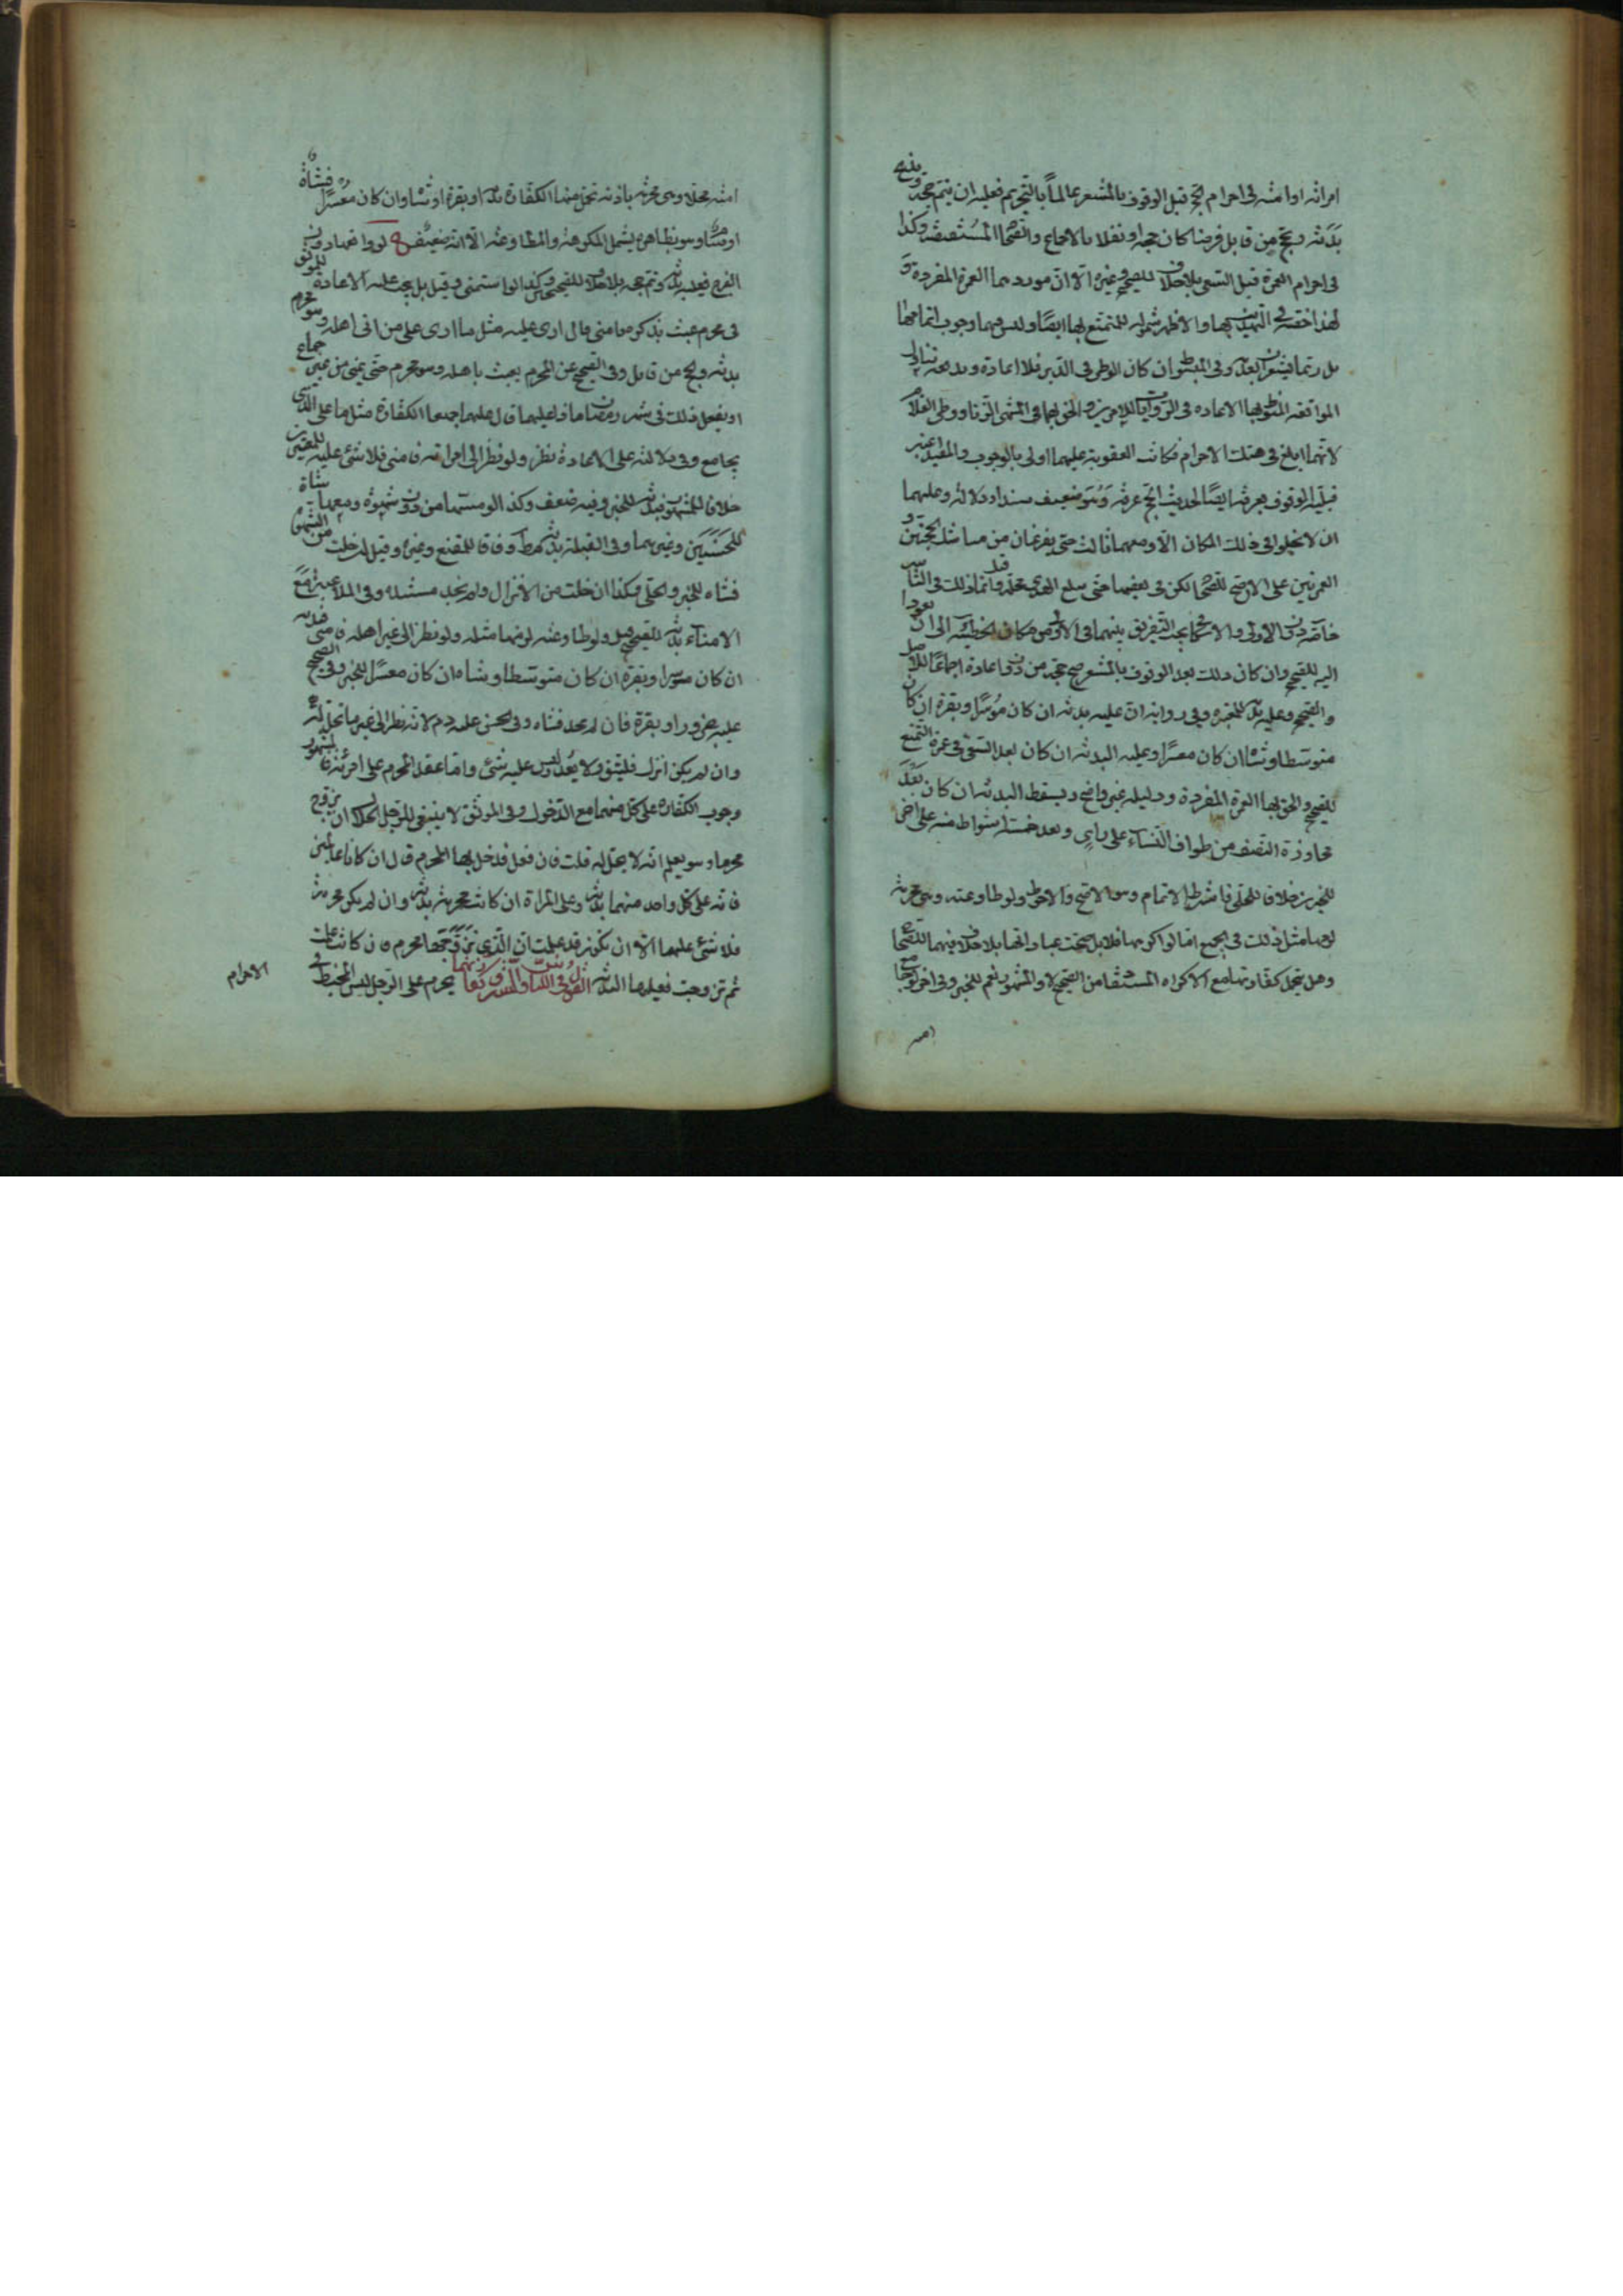 امراته او امته فى احرام الحج قبل الوقوف بالمشعر عالماً بالتحريم فعليه ان يتم حجه وينحر
بدنة ويحج من قابل فرضا كان حجه او نفلا بالاجماع والصحاح المستفيضة وكذا
فى احرام العمرة قبل السعى بلا خلاف للصحيح وغيره الا ان موردهما العمرة المفردة و
لهذا خصه فى التهذيب بها والاظهر شموله للمتمتع بها ايضا وليس فيهما وجوب اتمامها
بل ربما يشعران بالعدم وفى المبسوط ان كان الوطى فى الدبر فلا اعادة
المواقعة المنوط بها الاعادة فى الروايات للامرين والحق بهما فى المنتهى الزنا ووطى الغلام
لانهما ابلغ فى هتك الاحرام فكانت العقوبة عليهما اولى بالوجوب والمفيد اعتبر
قبلية الوقوف بعرفة ايضا لحديث الحج عرفة وهو ضعيف سندا ودلالة وعليهما
ان لا يخلوا فى ذلك المكان الا ومعهما ثالث حتى يفرغان من مناسك الحجتين و
العمرتين على الاصح للصحاح لكن فى بعضها حتى يبلغ الهدى محله وانما ذلك فى
خاصة دون الاولى والاسكافى يجب التفريق بينهما فى الاولى من مكان الخطيئة الى ان يعودا
اليه للصحيح وان كان ذلك بعد الوقوف بالمشعر صح حجه من دون اعادة اجماعا للاصل
والصحيح وعليه بدنة للمعتبرة وفى رواية ان عليه بدنة ان كان موسرا وبقرة ان كان
متوسطا وشاة ان كان معسرا وعليه البدنة ان كان بعد السعى فى عمرة التمتع
للصحيح والحق بها العمرة المفردة ودليله غير واضح ويسقط البدنة ان كان بعد
تجاوزة النصف من طواف النساء على راى وبعد خمسة اشواط منه على اخر
للخبرين خلافا للحلى فاشترط الاتمام وهو الاصح والاحوط ولو طاوعته وهى محرمة
لزمها مثل ذلك فى الجميع اما لو اكرهها فلا بل صحت عبادتها بلا خلاف فيهما للصحاح
وهل يتحمل كفارتها مع الاكراه المستفاد من الصحيح لا والمشهور نعم للخبر وفى اخر لو جامع
امته
امته محلا وهى محرمة باذنه تحمل عنها الكفارة بدنة او بقرة او شاة وان كان معسرا فشاة
او صياما وهو بظاهره يشمل المكرهة والمطاوعة الا انه ضعيف ولو واقعها دون
الفرج فعليه بدنة وتم حجه بلا خلاف للصحيحين وكذا لو استمنى وقيل بل يجب عليه الاعادة للموثق
فى محرم عبث بذكره فامنى قال ارى عليه مثل ما ارى على من اتى اهله وهو محرم
بدنة والحج من قابل وفى الصحيح عن المحرم يعبث باهله وهو محرم حتى يمنى من غير جماع
او يفعل ذلك فى شهر رمضان ماذا عليهما قال عليهما جميعا الكفارة مثل ما على الذى
يجامع وفى دلالته على الاعادة نظر ولو نظر الى امراته فامنى فلا شئ عليه للمعتبرين
خلافا للمشهور فبدنة للخبر وفيه ضعف وكذا لو مسها من دون شهوة ومعها شاة
للحسنين وغيرهما وفى القبلة بدنة مطلقا وفاقا للمقنع وغيره وقيل لو خلت من الشهوة
فشاة للخبر والحلى وكذا ان خلت من الانزال ولم نجد مستنده وفى الملاعبة مع
الامناء بدنة للصحيح قيل ولو طاوعته لزمها مثله ولو نظر الى غير اهله فامنى فبدنة
ان كان موسرا وبقرة ان كان متوسطا وشاة ان كان معسرا للخبر وفى الصحيح
عليه جزور او بقرة فان لم يجد فشاة وفى الحسن عليه دم لانه نظر الى غير ما يحل له
وان لم يكن انزل فليتق ولا يعد وليس عليه شئ واما عقد المحرم على امرأة فالمشهور
وجوب الكفارة على كل منهما مع الدخول وفى الموثق لا ينبغى للرجل الحلال ان يزوج
محرما وهو يعلم انه لا يحل له قلت فان فعل فدخل بها المحرم قال ان كانا عالمين
فان على كل واحد منهما بدنة وعلى المراة ان كانت محرمة بدنة وان لم يكن محرمة
فلا شئ عليها الا ان تكون قد علمت ان الذى تزوجها محرم فان كانت علمت
ثم تزوجت فعليها البدنة القول فى اللباس والستر وكفارتهما يحرم على الرجل لبس المخيط فى
الاحرام